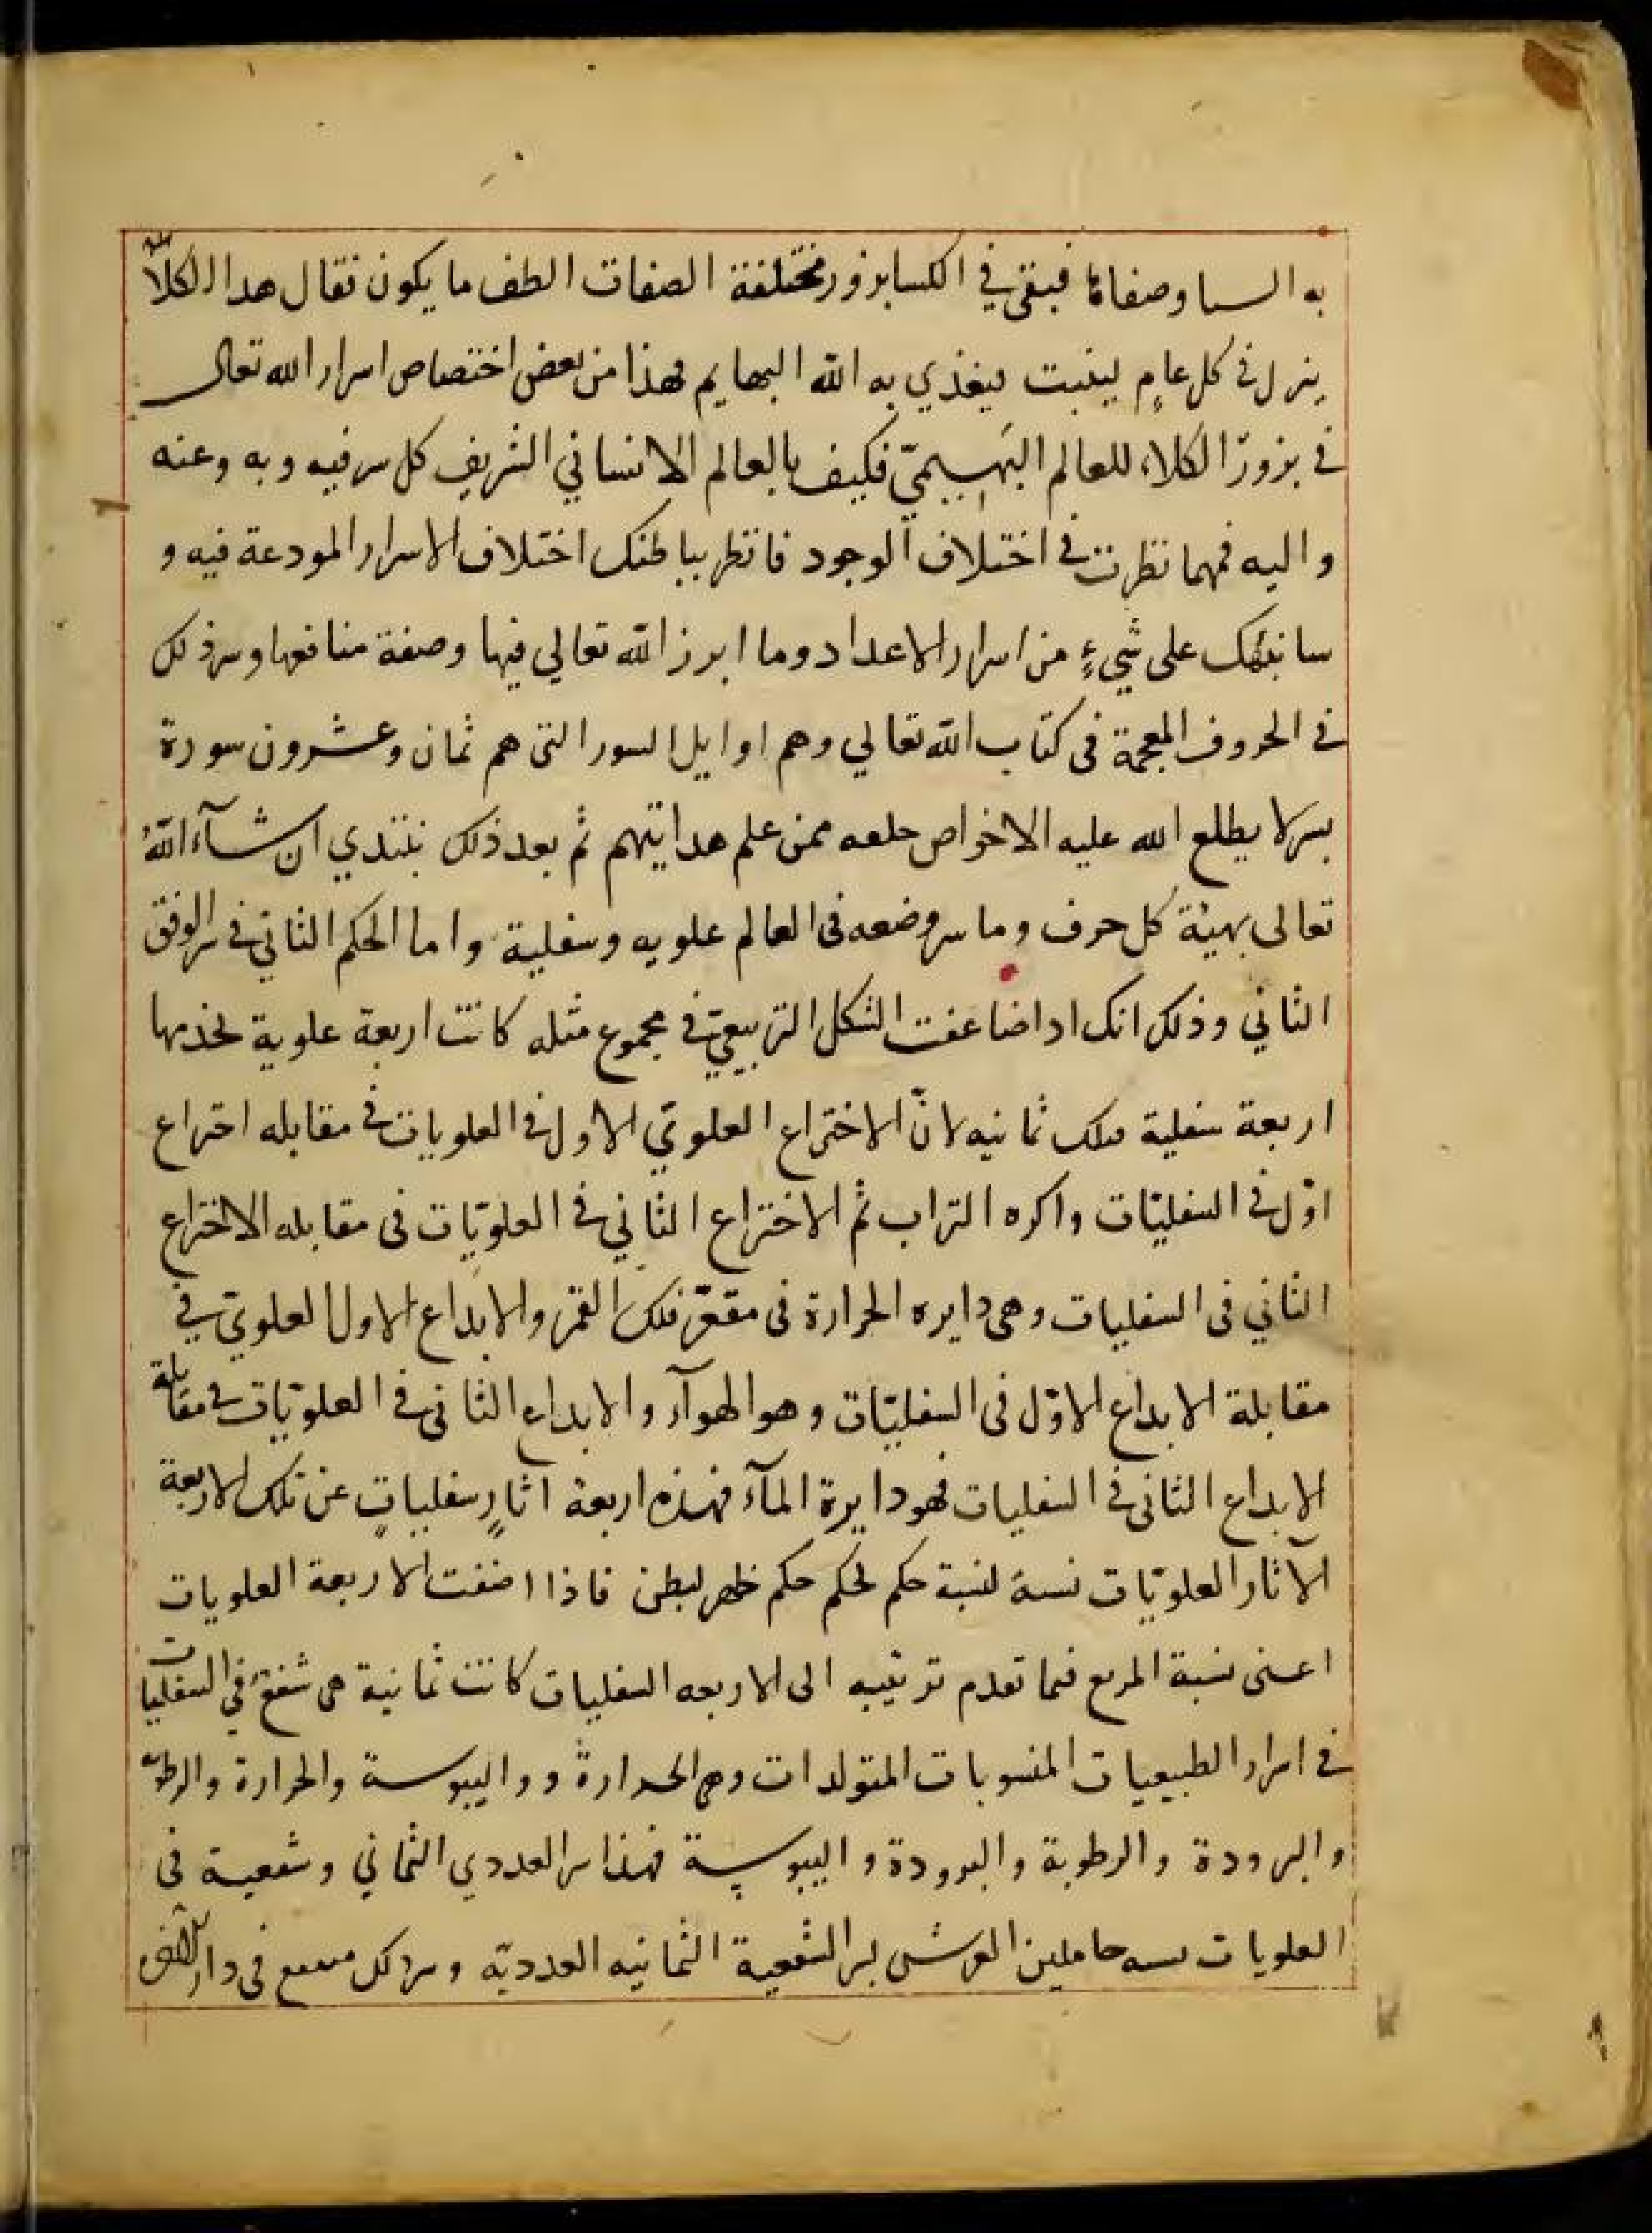 به السا وصفاتها فبقي في الكسا بزور مختلفة الصفات الطف ما يكون فقال هدا الكلأ
ينزل في كل عامٍ لينبت ليغذي به الله البهايم فهذا من بعض اختصاص اسرار الله تعالى
في بزورّ الكلاء للعالم البَهِيميّ فكيف بالعالم الانساني الشريف كل سر فيه وبه وعنه
واليه فمهما نظرت في اختلاف الوجود فانظر بباطنك اختلاف الاسرار المودعة فيه و
سانبئك على شيءٍ من اسرار الاعداد وما ابرز الله تعالي فيها وصفة منافعها وسر ذلك
في الحروف المعجمة في كتاب الله تعالي وهم اوايل السور التي هم ثمان وعشرون سورة
بسر لا يطلع الله عليه الا خواص حلعه ممن علم هدايتهم ثم بعد ذلك نبتدي ان شآء اللهُ
تعالى بهيئة كل حرف وما سر وضعه في العالم علويه وسفلية واما الحكم الثاني في سر الوفق
الثاني وذلك انك ادا ضاعفت الشكل التربيعيّ في مجموع مثله كانت اربعة علوية تخدمها
اربعة سفلية فتلك ثمانيه لانّ الاختراع العلوي الاول في العلويات في مقابله اختراع
اوّل في السفليّات واكره التراب ثم الاختراع الثاني في العلويّات في مقابله الاختراع
الثاني في السفليات وهي دايره الحرارة في مقعّر فلك القمر والابداع الاول العلويّ في
مقابلة الابداع الاوّل في السفليّات وهو الهوآء والابداع الثاني في العلويّات في مقابلة
الابداع الثاني في السفليات فهو دايرة المآء فهذه اربعة اثارٍ سفلياتٍ عن تلك الاربعة
الآثار العلويّات نسبة لنسبة حكم لحكم حكم ظهر لبطن فاذا اضفت الاربعة العلويات
اعنى نسبة المربع فيما تقدم ترتيبه الى الاربعه السفليات كانت ثمانية هي شفع في السفليات
في اسرار الطبيعيات المنسوبات المتولدات وهي الحرارة وواليبوسة والحرارة والرطو
والبرودة والرطوبة والبرودة واليبوسة فهذا سر العددي الثماني وشفعية في
العلويات نسبه حاملين العرش لسر الشفعية الثمانيه العدديّه وسر كل في دار